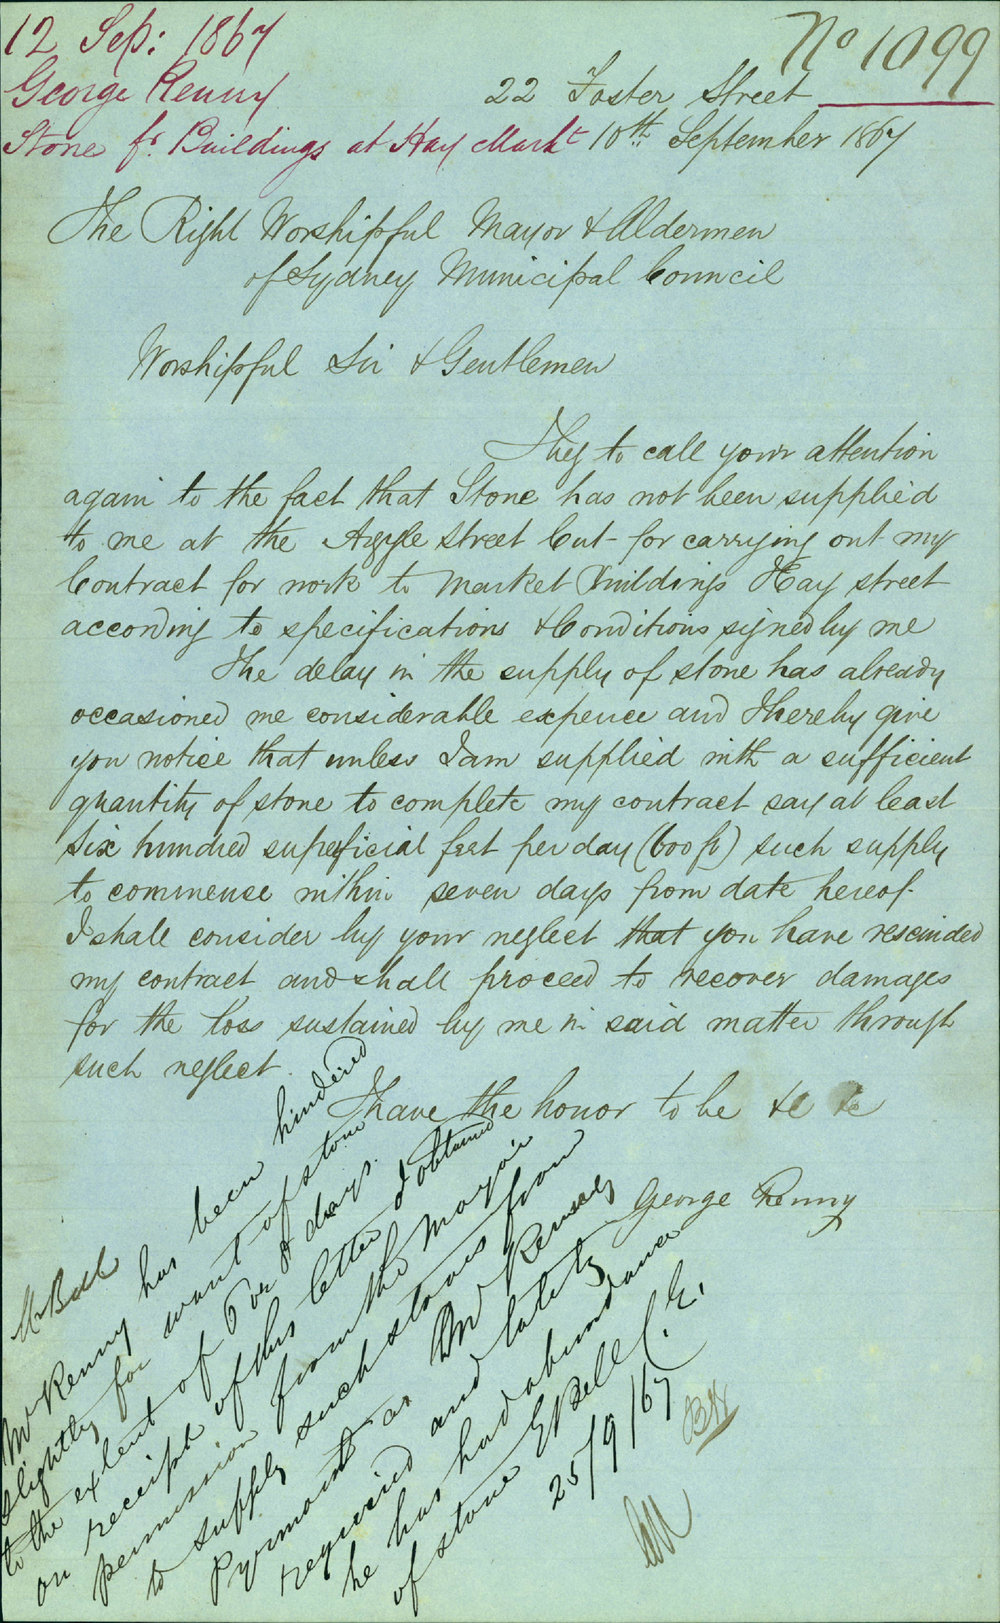 12 Sep: 1867
George Renny
Stone fr. Buildings at Hay Markt
No 1099
22 Foster Street
10th September 1867
The Right Worshipful Mayor & Aldermen
of Sydney Municipal Council
Worshipful Sir & Gentlemen
I beg to call your attention
again to the fact that Stone has not been supplied
to me at the Argyle Street Cut - for carrying out my
Contract for work to Market Buildings Hay street
according to specifications & Conditions signed by me
The delay in the supply of stone has already
occasioned me considerable expence and I hereby give
you notice that unless I am supplied with a sufficient
quantity of stone to complete my contract say at least
six hundred superficial feet per day (600 ft) such supply
to commense within seven days from date hereof.
I shall consider by your neglect that you have rescinded
my contract and shall proceed to recover damages
for the loss sustained by me in said matter through
such neglect.
I have the honor to be &c &c
George Renny
Mr Bell
Mr Renny has been hindered
slightly for want of stone
to the extent of 6 or 8 days.
on receipt of this letter I obtained
permission from the Mayor
to supply such stones from
Pyrmont as Mr Renny
required and lately
he has had abundance
of stone E Bell C.E.
25/9/67